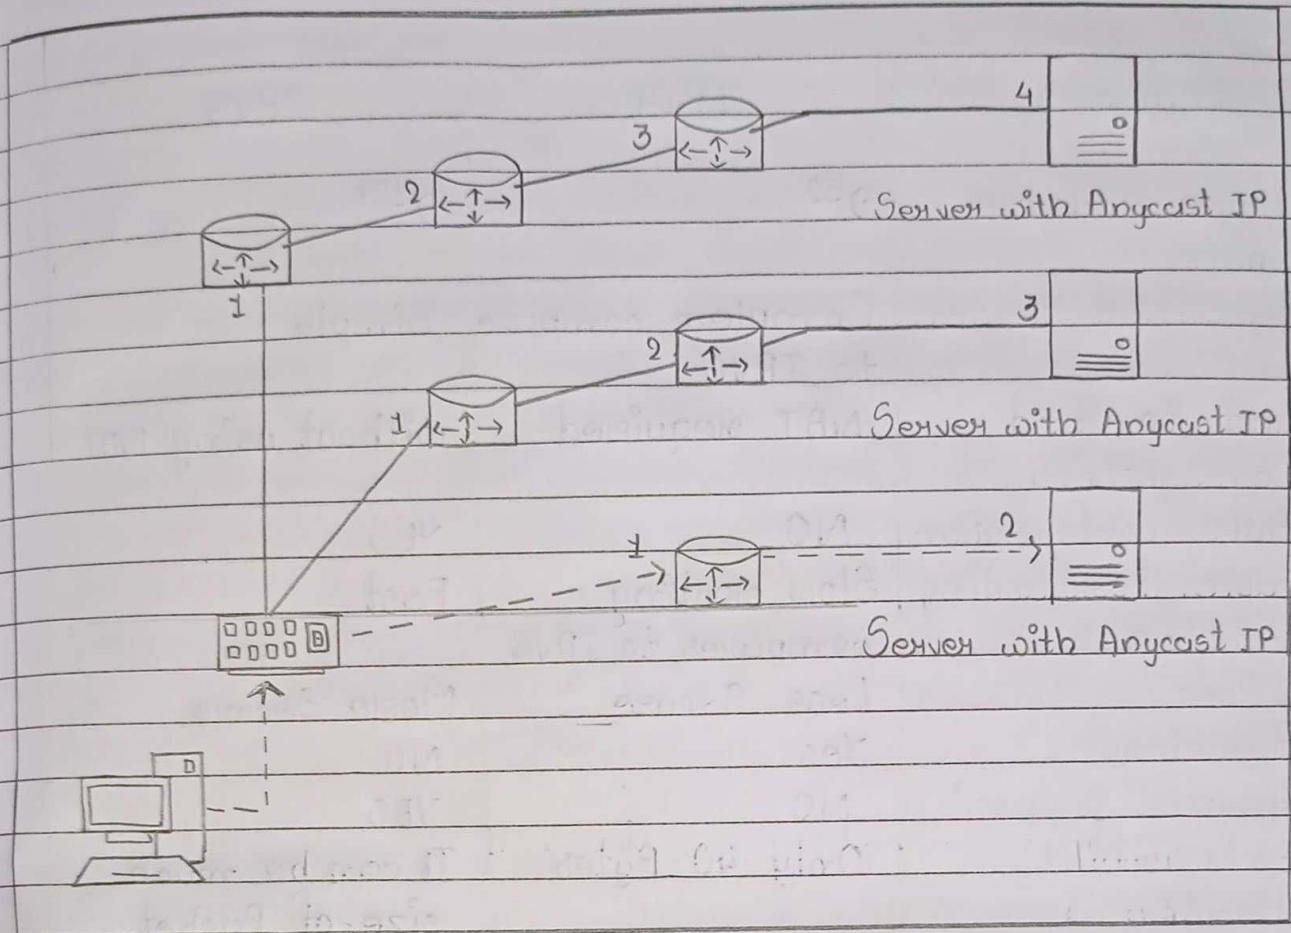 4
3
2
Server with Anycast IP
1
3
2
1
Server with Anycast IP
2
1
Server with Anycast IP